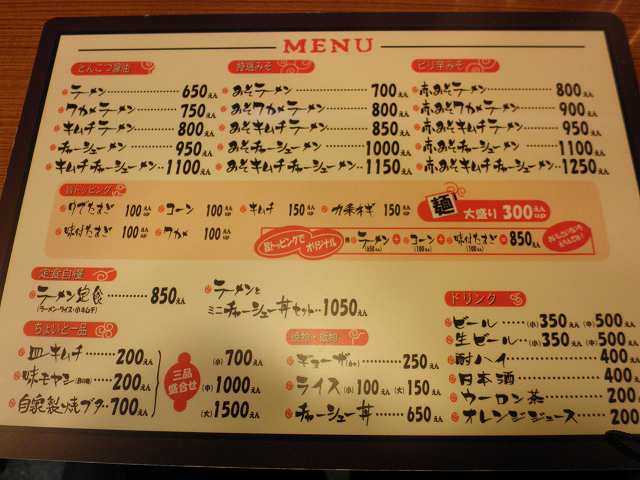 MENU
とんこつ醤油
ラーメン 650えん
ワカメラーメン 750えん
キムチラーメン 800えん
チャーシューメン 950えん
キムチチャーシューメン 1100えん
特選みそ
みそラーメン 700えん
みそワカメラーメン 800えん
みそキムチラーメン 850えん
みそチャーシューメン 1000えん
みそキムチチャーシューメン 1150えん
ピリ辛みそ
赤みそラーメン 800えん
赤みそワカメラーメン 900えん
赤みそキムチラーメン 950えん
赤みそチャーシューメン 1100えん
赤みそキムチチャーシューメン 1250えん
旨トッピング
ゆでたまご 100えんup コーン 100えんup キムチ 150えんup カ条ネギ 150えんup
味付たまご 100えんup ワカメ 100えんup
麺 大盛り 300えんup
旨トッピングでオリジナル
ラーメン+コーン+味付たまご=850えん
定食自慢
ラーメン定食 850えん
(ラーメン・ライス・小キムチ)
ラーメンと
ミニチャーシュー丼セット 1050えん
ちょいと一品
皿キムチ 200えん
味モヤシ 200えん
自家製焼ブタ 700えん
三品盛合せ
(小) 700えん
(中) 1000えん
(大) 1500えん
ギョーザ 250えん
ライス (小)100えん (大)150えん
チャーシュー丼 650えん
ドリンク
ビール (小)350えん (中)500えん
生ビール (小)350えん (中)500えん
酎ハイ 400えん
日本酒 400えん
ウーロン茶 200えん
オレンジジュース 200